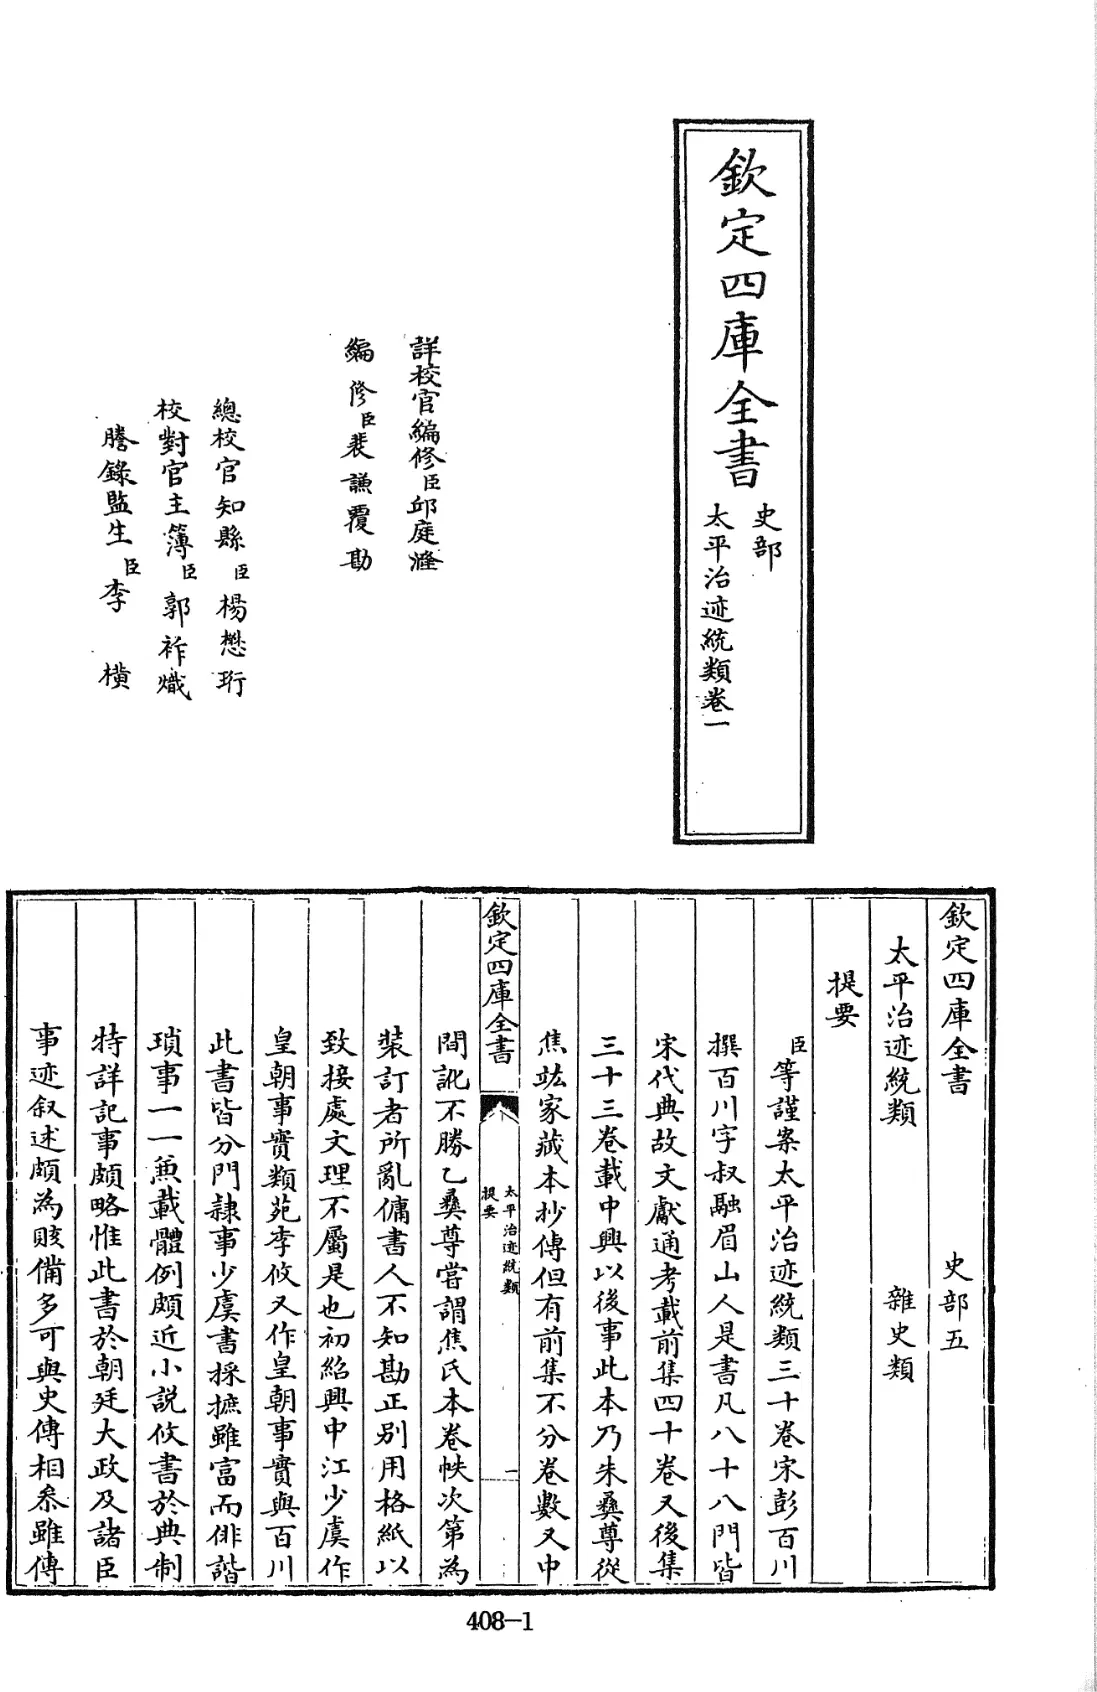 欽定四庫全書
史部
太平治迹統類卷一
詳校官編修臣邱庭漋
編修臣裴謙覆勘
總校官知縣臣楊懋珩
校對官主簿臣郭祚熾
謄錄監生臣李橫
欽定四庫全書 史部五
太平治迹統類 雜史類
提要
臣等謹案太平治迹統類三十卷宋彭百川
撰百川字叔融眉山人是書凡八十八門皆
宋代典故文獻通考載前集四十卷又後集
三十三卷載中興以後事此本乃朱彞尊從
焦竑家藏本抄傳但有前集不分卷數又中
欽定四庫全書
太平治迹統類
提要
一
間訛不勝乙彞尊嘗謂焦氏本卷帙次第為
裝訂者所亂傭書人不知勘正别用格紙以
致接處文理不屬是也初紹興中江少虞作
皇朝事實類苑李攸又作皇朝事實與百川
此書皆分門隸事少虞書採摭雖富而俳諧
瑣事一一兼載體例頗近小説攸書於典制
特詳記事頗略惟此書於朝廷大政及諸臣
事迹叙述頗為賅備多可與史傳相叅雖傳
408-1